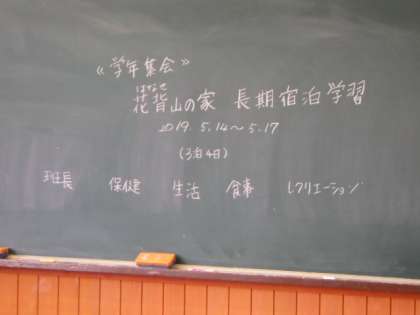 《学年集会》
はなせ
花背山の家 長期宿泊学習
2019. 5.14〜5.17
(3泊4日)
班長 保健 生活 食事 レクリエーション